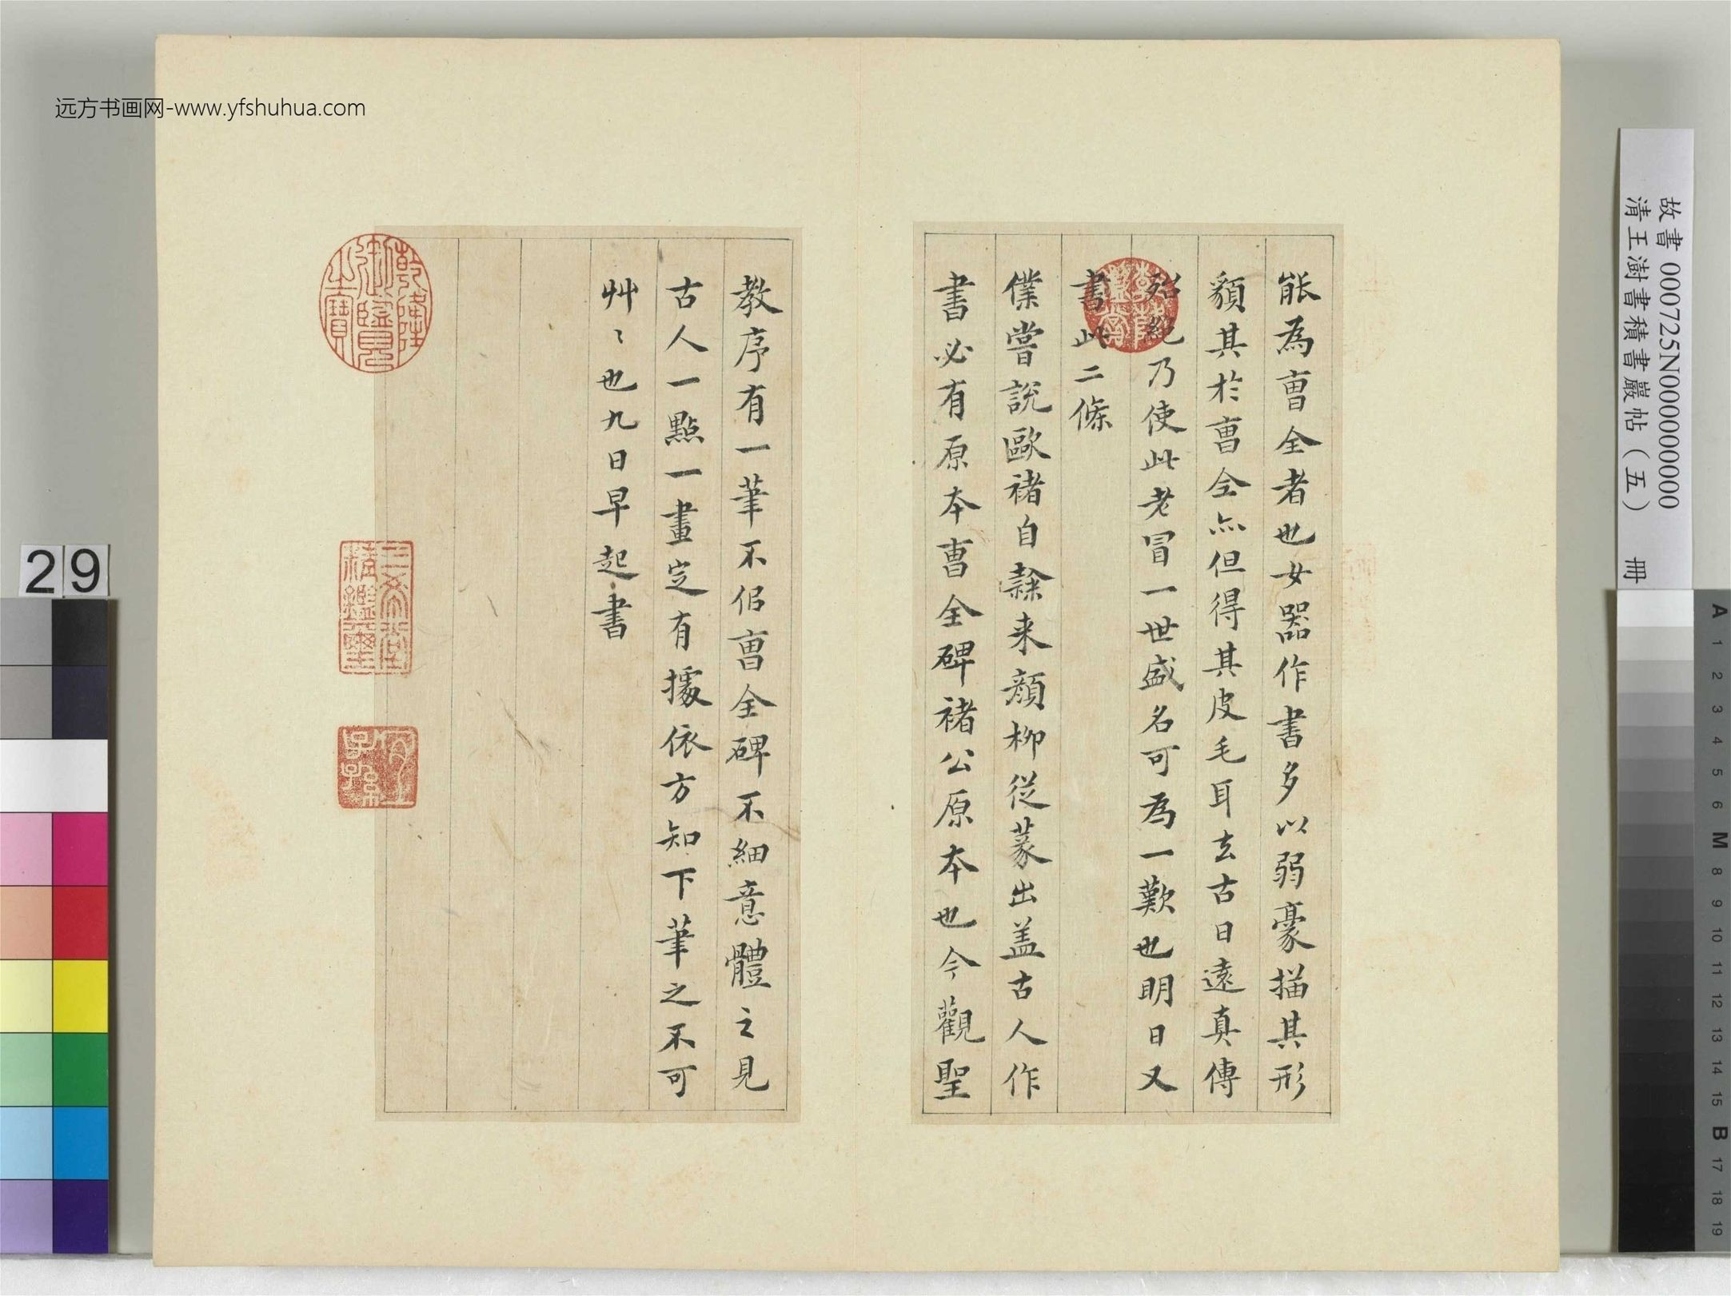 远方书画网-www.yfshuhua.com
故書 000725N000000000
清王澍書積書巖帖(五) 冊
能為曹全者也女器作書多以弱豪描其形
貌其於曹全亦但得其皮毛耳去古日遠真傳
殆絕乃使此老冒一世盛名可為一歎也明日又
書此二條
僕嘗說歐褚自隸来顏柳從篆出盖古人作
書必有原本曹全碑褚公原本也今觀聖
教序有一筆不侣曹全碑不細意體之見
古人一點一畫定有據依方知下筆之不可
艸〻也九日早起書
乾隆御覽之寶
三希堂精鑑璽
宜子孫
29
A 1 2 3 4 5 6 M 8 9 10 11 12 13 14 15 B 17 18 19